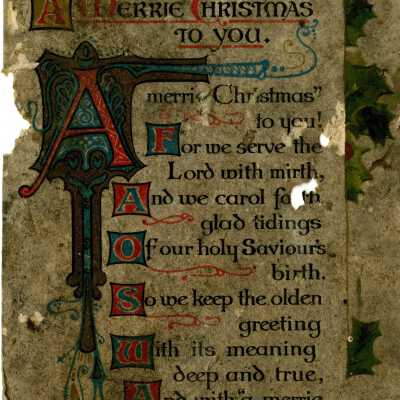 A MERRIE CHRISTMAS
TO YOU.
A merrie Christmas"
to you!
For we serve the
Lord with mirth,
And we carol forth
glad tidings
Of our holy Saviour's
birth.
So we keep the olden
greeting
With its meaning
deep and true,
And with "a merrie